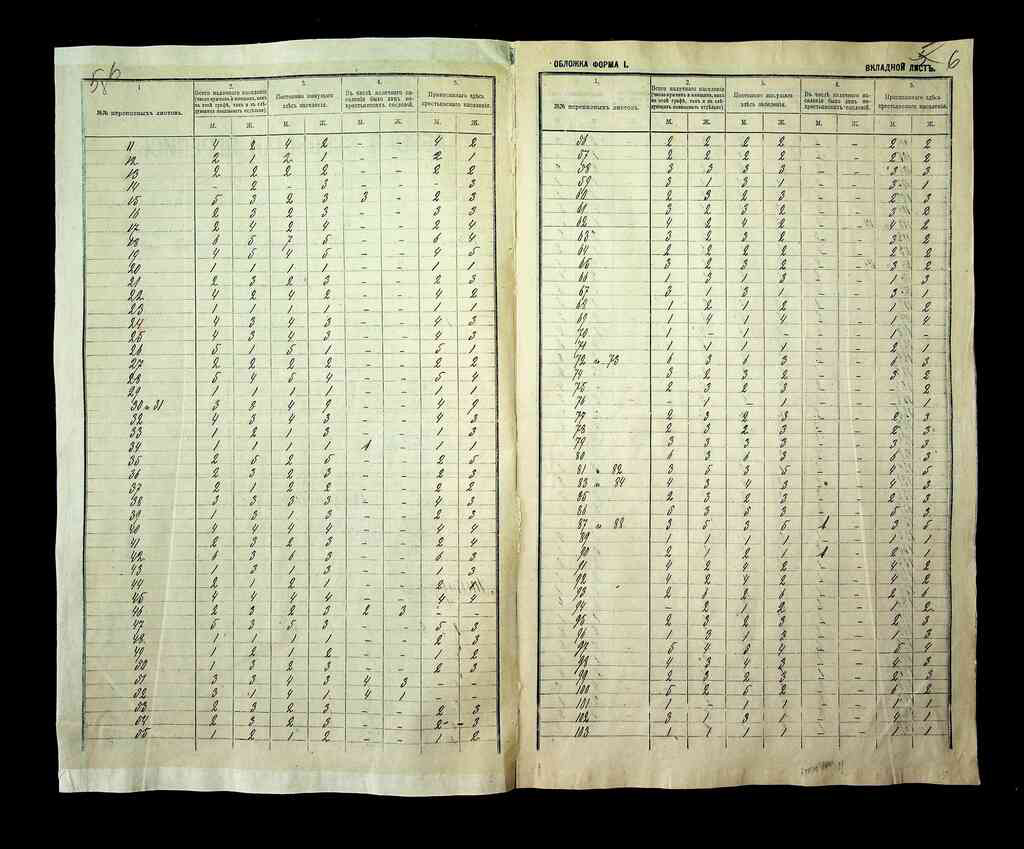 58 6
1 2. 3. 4. 5.
№№ переписныхъ листовъ. Всего наличнаго населенія (число мужчинъ и женщинъ, какъ въ этой графѣ, такъ и въ слѣдующихъ показывать отдѣльно) Постоянно живущаго здѣсь населенія. Въ числѣ наличнаго населенія было лицъ не-крестьянскихъ сословій. Приписаннаго здѣсь крестьянскаго населенія.
М. Ж. М. Ж. М. Ж. М. Ж.
11 4 2 4 2 - - 4 2
12 2 1 2 1 - - 2 1
13 2 2 2 2 - - 2 2
14 - 2 - 3 - - - 3
15 5 3 2 3 3 - 2 3
16 2 3 2 3 - - 3 3
17 2 4 2 4 - - 2 4
18 6 5 7 5 - - 6 4
19 4 5 4 5 - - 4 5
20 1 1 1 1 - - 1 1
21 2 3 2 3 - - 2 3
22 4 2 4 2 - - 4 2
23 1 1 1 1 - - 1 1
24 4 3 4 3 - - 4 3
25 4 3 4 3 - - 4 3
26 5 1 5 1 - - 5 1
27 2 2 2 2 - - 2 2
28 5 4 5 4 - - 5 4
29 1 1 1 1 - - 1 1
30 и 31 3 4 - - 4
32 4 3 4 3 - - 4 3
33 1 2 1 3 - - 1 3
34 1 1 1 1 1 - 1 1
35 2 5 2 5 - - 2 5
36 2 3 2 3 - - 2 3
37 2 1 2 2 - - 2 2
38 3 3 3 3 - - 4 3
39 1 3 1 3 - - 2 3
40 4 4 4 4 - - 4 4
41 2 3 2 3 - - 2 4
42 6 3 6 3 - - 6 3
43 1 3 1 3 - - 1 3
44 2 1 2 1 - - 2
45 4 4 4 4 - - 4 4
46 2 3 2 3 2 3 - -
47 5 3 5 3 - - 5 3
48 1 1 1 1 - - 2 3
49 1 2 1 2 - - 1 2
50 1 3 2 3 - - 2 3
51 3 3 4 3 4 3 - -
52 3 1 4 1 4 1 - -
53 2 3 2 3 - - 2 3
54 2 3 2 3 - - 2 - 3
55 1 2 1 2 - - 1 2
ОБЛОЖКА ФОРМА I. ВКЛАДНОЙ ЛИСТЪ. 6
1. 2. 3. 4. 5.
№№ переписныхъ листовъ. Всего наличнаго населенія (число мужчинъ и женщинъ, какъ въ этой графѣ, такъ и въ слѣдующихъ показывать отдѣльно) Постоянно живущаго здѣсь населенія. Въ числѣ наличнаго населенія было лицъ не-крестьянскихъ сословій. Приписаннаго здѣсь крестьянскаго населенія.
М. Ж. М. Ж. М. Ж. М. Ж.
56 2 2 2 2 - - 2 2
57 2 2 2 2 - - 2 2
58 3 3 3 3 - - 3 3
59 3 1 3 1 - - 3 1
60 2 3 2 3 - - 2 3
61 3 2 3 2 - - 3 2
62 4 2 4 2 - - 4 2
63 3 2 3 2 - - 3 2
64 2 2 2 2 - - 2 2
65 3 2 3 2 - - 3 2
66 1 3 1 3 - - 1 3
67 3 1 3 1 - - 3 1
68 1 2 1 2 - - 1 2
69 1 4 1 4 - - 1 4
70 1 - 1 - - - 1 -
71 1 1 1 1 - - 2 1
72 и 73 6 3 6 3 - - 6 3
74 3 2 3 2 - - 3 2
75 2 3 2 3 - - - 2
76 - 1 - 1 - - - 1
77 2 3 2 3 - - 2 3
78 2 3 2 3 - - 2 3
79 3 3 3 3 - - 3 3
80 6 3 6 3 - - 6 3
81 и 82 3 5 3 5 - - 4 5
83 и 84 4 3 4 3 - - 4 3
85 2 3 2 3 - - 2 3
86 5 3 5 3 - - 5 3
87 и 88 3 5 3 5 1 - 3 5
89 1 1 1 1 - - 1 1
90 2 1 2 1 1 - 2 1
91 4 2 4 2 - - 4 2
92 4 2 4 2 - - 4 2
93 2 6 2 6 - - 2 6
94 - 2 1 2 - - 1 2
95 2 3 2 3 - - 2 3
96 1 3 1 3 - - 1 3
97 5 4 5 4 - - 5 4
98 4 3 4 3 - - 4 3
99 2 3 2 3 - - 2 3
100 5 2 5 2 - - 6 2
101 1 - 1 1 - - 1 1
102 3 1 3 1 - - 4 1
103 1 1 1 1 - - 1 1